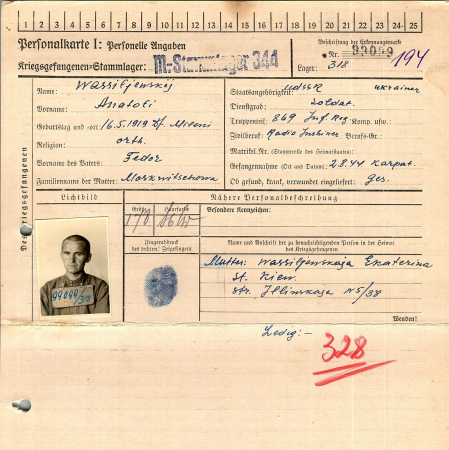 1 2 3 4 5 6 7 8 9 10 11 12 13 14 15 16 17 18 19 20 21 22 23 24 25
Personalkarte I: Personelle Angaben
Kriegsgefangenen-Stammlager: M.-Stammlager 344
Beschriftung der Erkennungsmarke
Nr. 99099
Lager: 318
194
Des Kriegsgefangenen
Name: Wassiljewskij
Vorname: Anatoli
Geburtstag und -ort: 16.5.1919
Religion: orth.
Vorname des Vaters: Fedor
Familienname der Mutter: Moskwitschowa
Staatsangehörigkeit: UdSSR ukrainer
Dienstgrad: Soldat.
Truppenteil: 869 Inf. Reg Komp. usw.:
Zivilberuf: Radio Berufs-Gr.:
Matrikel Nr. (Stammrolle des Heimatstaates):
Gefangennahme (Ort und Datum): Karpat.
Ob gesund, krank, verwundet eingeliefert: Ges.
Lichtbild
Nähere Personalbeschreibung
Größe
Haarfarbe
Besondere Kennzeichen:
170
Fingerabdruck
des rechten! Zeigefingers
Name und Anschrift der zu benachrichtigenden Person in der Heimat
des Kriegsgefangenen
Mutter: Wassiljewskaja Ekaterina
st. Kiew
str. Illinskaja N 5/38
99099
Wenden!
Ledig:-
328